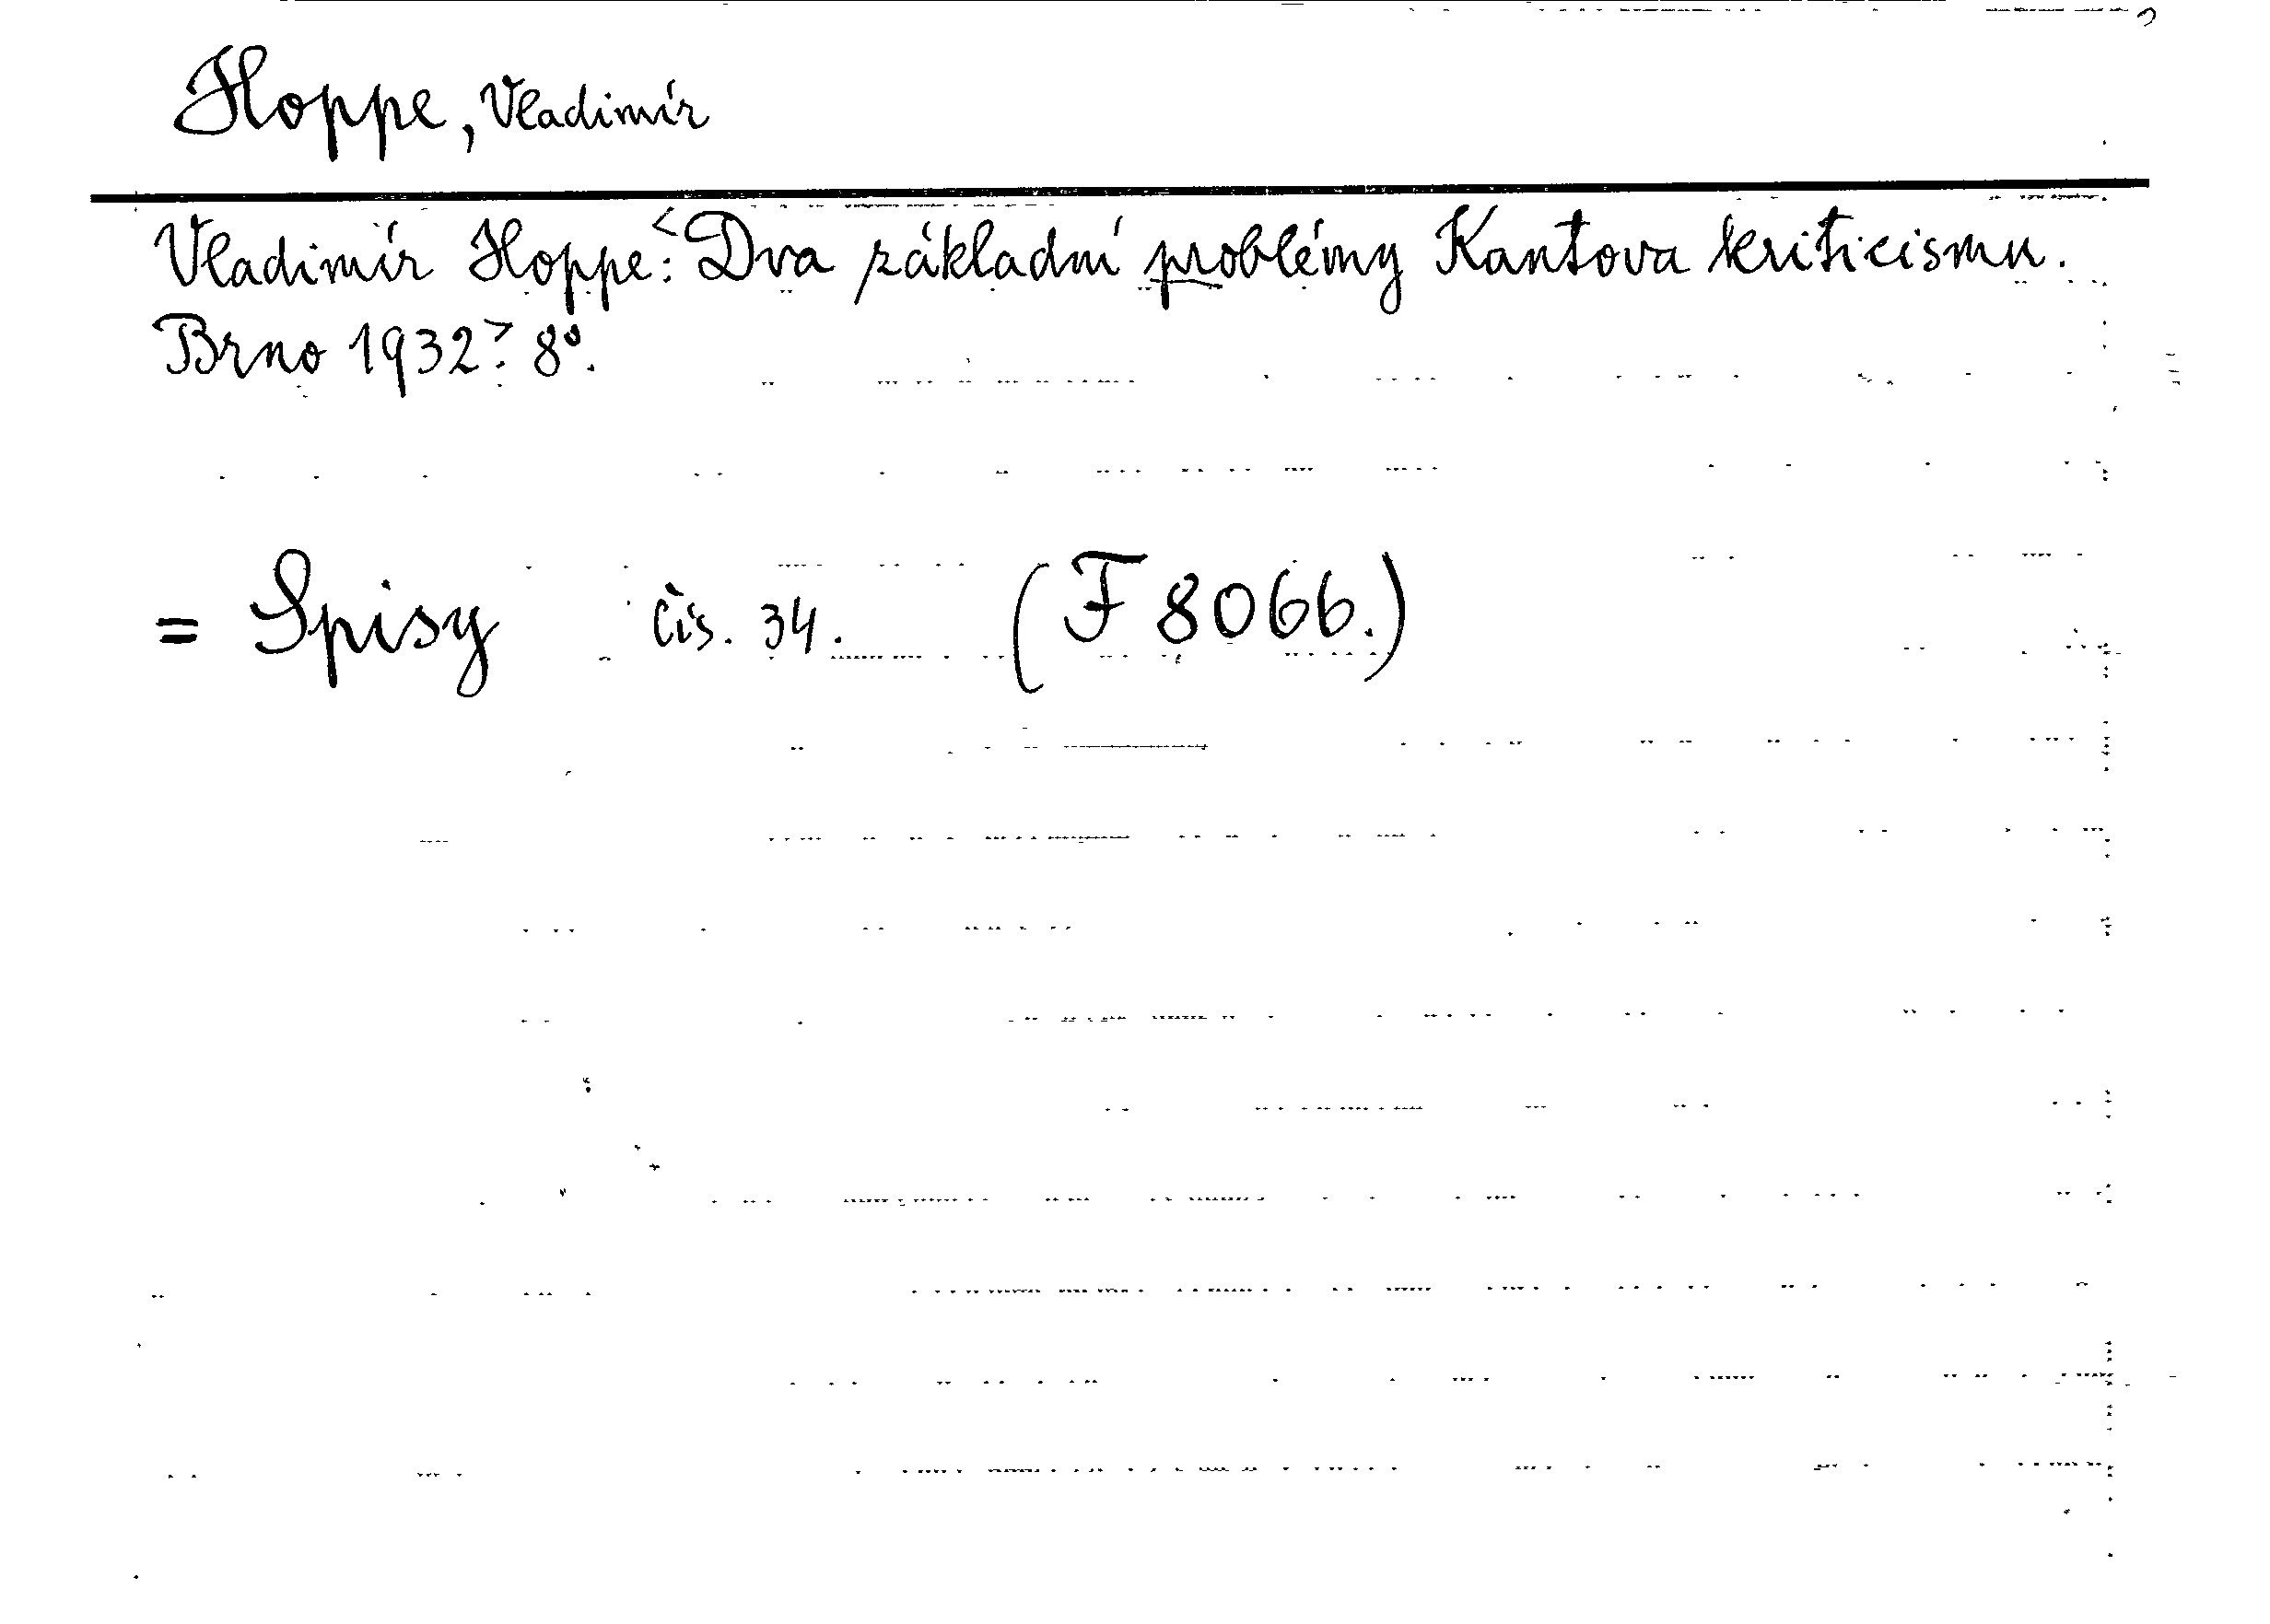 Hoppe, Vladimír
Vladimír Hoppe: <Dva základní problémy Kantova kriticismu.
Brno 1932>. 8°.
= Spisy čís. 34. (F 8066.)